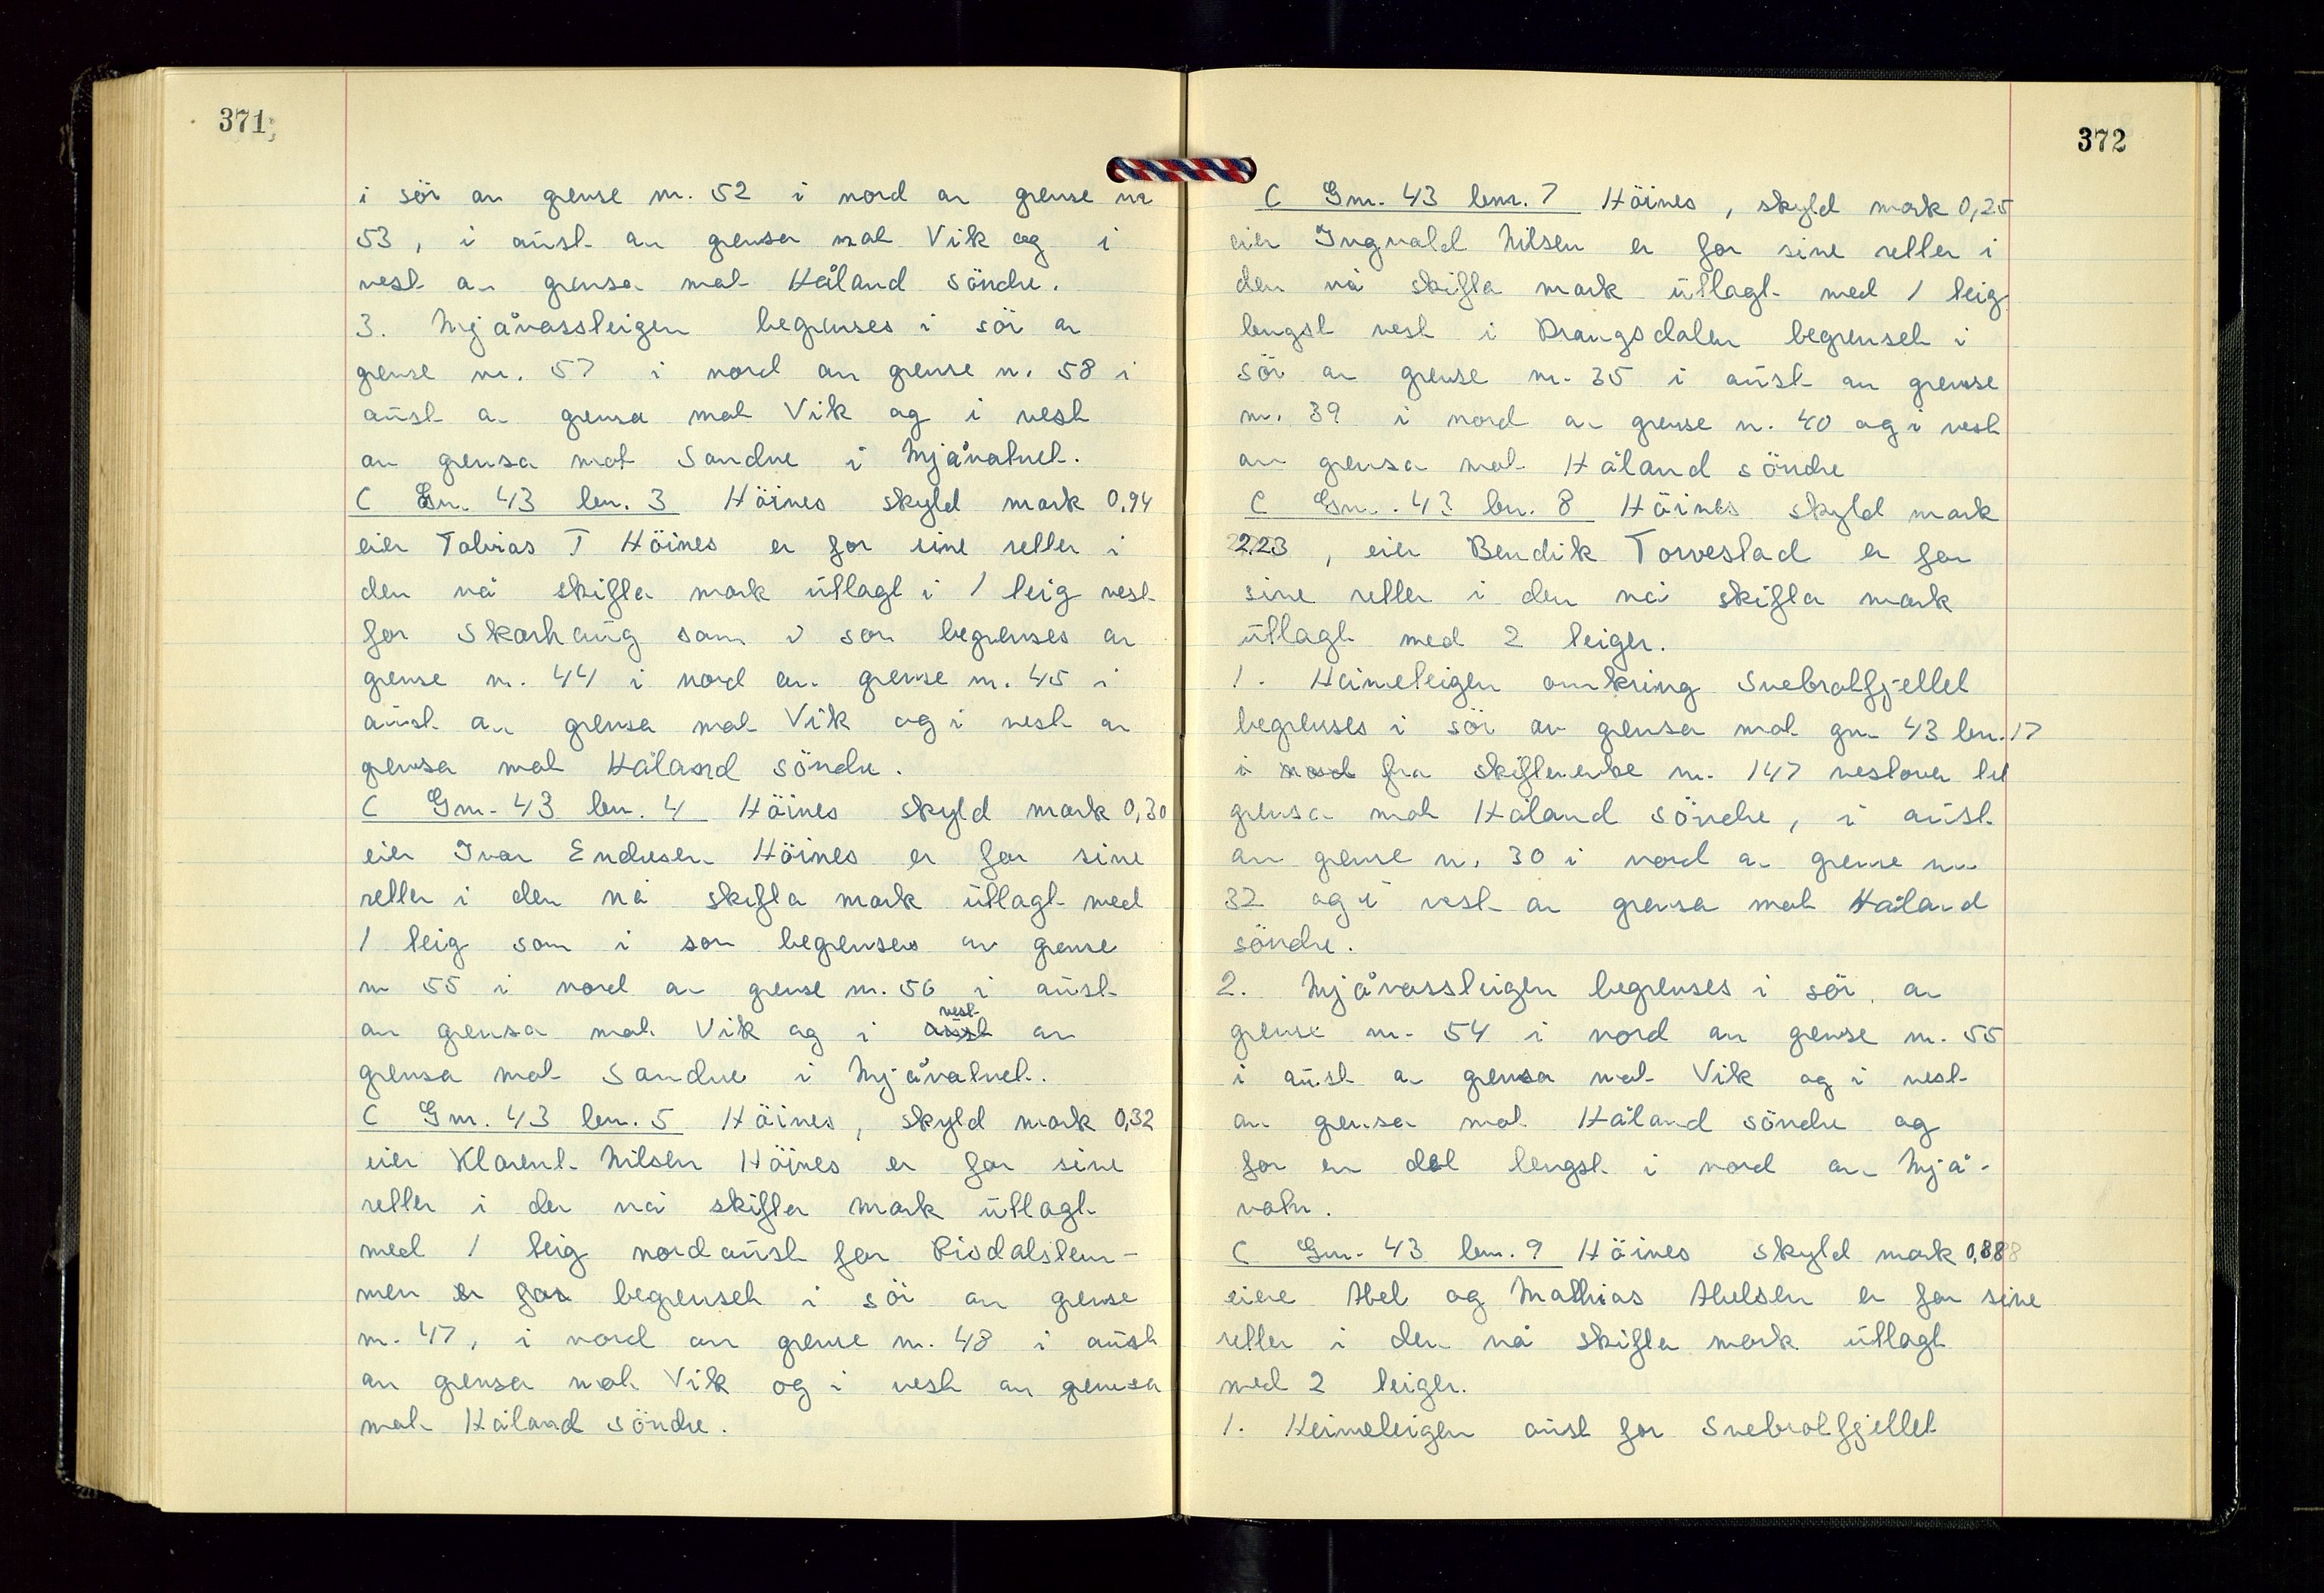 371
i sör av grense nr. 52 i nord av grense nr
53, i aust av grensa mot Vik og i
vest av grensa mot Håland söndre.
3. Mjåvassleigen begrenses i sör av
grense nr. 57 i nord av grense nr. 58 i
aust av grensa mot Vik og i vest
av grensa mot Sandve i Mjåvatnet.
C Gnr. 43 bnr. 3 Höines skyld mark 0,94
eier Tobias T Höines er for sine retter i
den nå skifta mark utlagt i 1 leig vest
for Skorhaug som i sör begrenses av
grense nr. 44 i nord av grense nr. 45 i
aust av grensa mot Vik og i vest av
grensa mot Håland söndre.
C Gnr. 43 bnr. 4 Höines skyld mark 0,30
eier Ivar Endresen Höines er for sine
retter i den nå skifta mark utlagt med
1 leig som i sör begrenses av grense
nr 55 i nord av grense nr. 56 i aust
av grensa mot Vik og i aust vest av
grensa mot Sandve i Mjåvatnet.
C Gnr. 43 bnr. 5 Höines, skyld mark 0,32
eier Klarent Nilsen Höines er for sine
retter i den nå skifta mark utlagt
med 1 leig nordaust for Risdalstem-
men er for begrenset i sör av grense
nr. 47, i nord av grense nr. 48 i aust
av grensa mot Vik og i vest av grensa
mot Håland söndre.
372
C Gnr. 43 bnr. 7 Höines, skyld mark 0,25
eier Ingvald Nilsen er for sine retter i
den nå skifta mark utlagt med 1 leig
lengst vest i Drangsdalen begrenset i
sör av grense nr. 35 i aust av grense
nr. 39 i nord av grense nr. 40 og i vest
av grensa mot Håland söndre
C Gnr. 43 bnr. 8 Höines skyld mark
2,23, eier Bendik Torvestad er for
sine retter i den nå skifta mark
utlagt med 2 leiger.
1. Heimeleigen omkring Snebrotfjellet
begrenses i sör av grensa mot gnr 43 bnr. 17
i nord fra skiftemerke nr. 147 vestover til
grensa mot Håland söndre, i aust
av grense nr. 30 i nord av grense nr
32 og i vest av grensa mot Håland
söndre.
2. Mjåvassleigen begrenses i sör av
grense nr. 54 i nord av grense nr. 55
i aust av grensa mot Vik og i vest
av grensa mot Håland söndre og
for en del lengst i nord av Mjå-
vatn.
C Gnr. 43 bnr. 9 Höines skyld mark 0,88
eiere Abel og Mathias Abelsen er for sine
retter i den nå skifta mark utlagt
med 2 leiger.
1. Heimeleigen aust for Snebrotfjellet